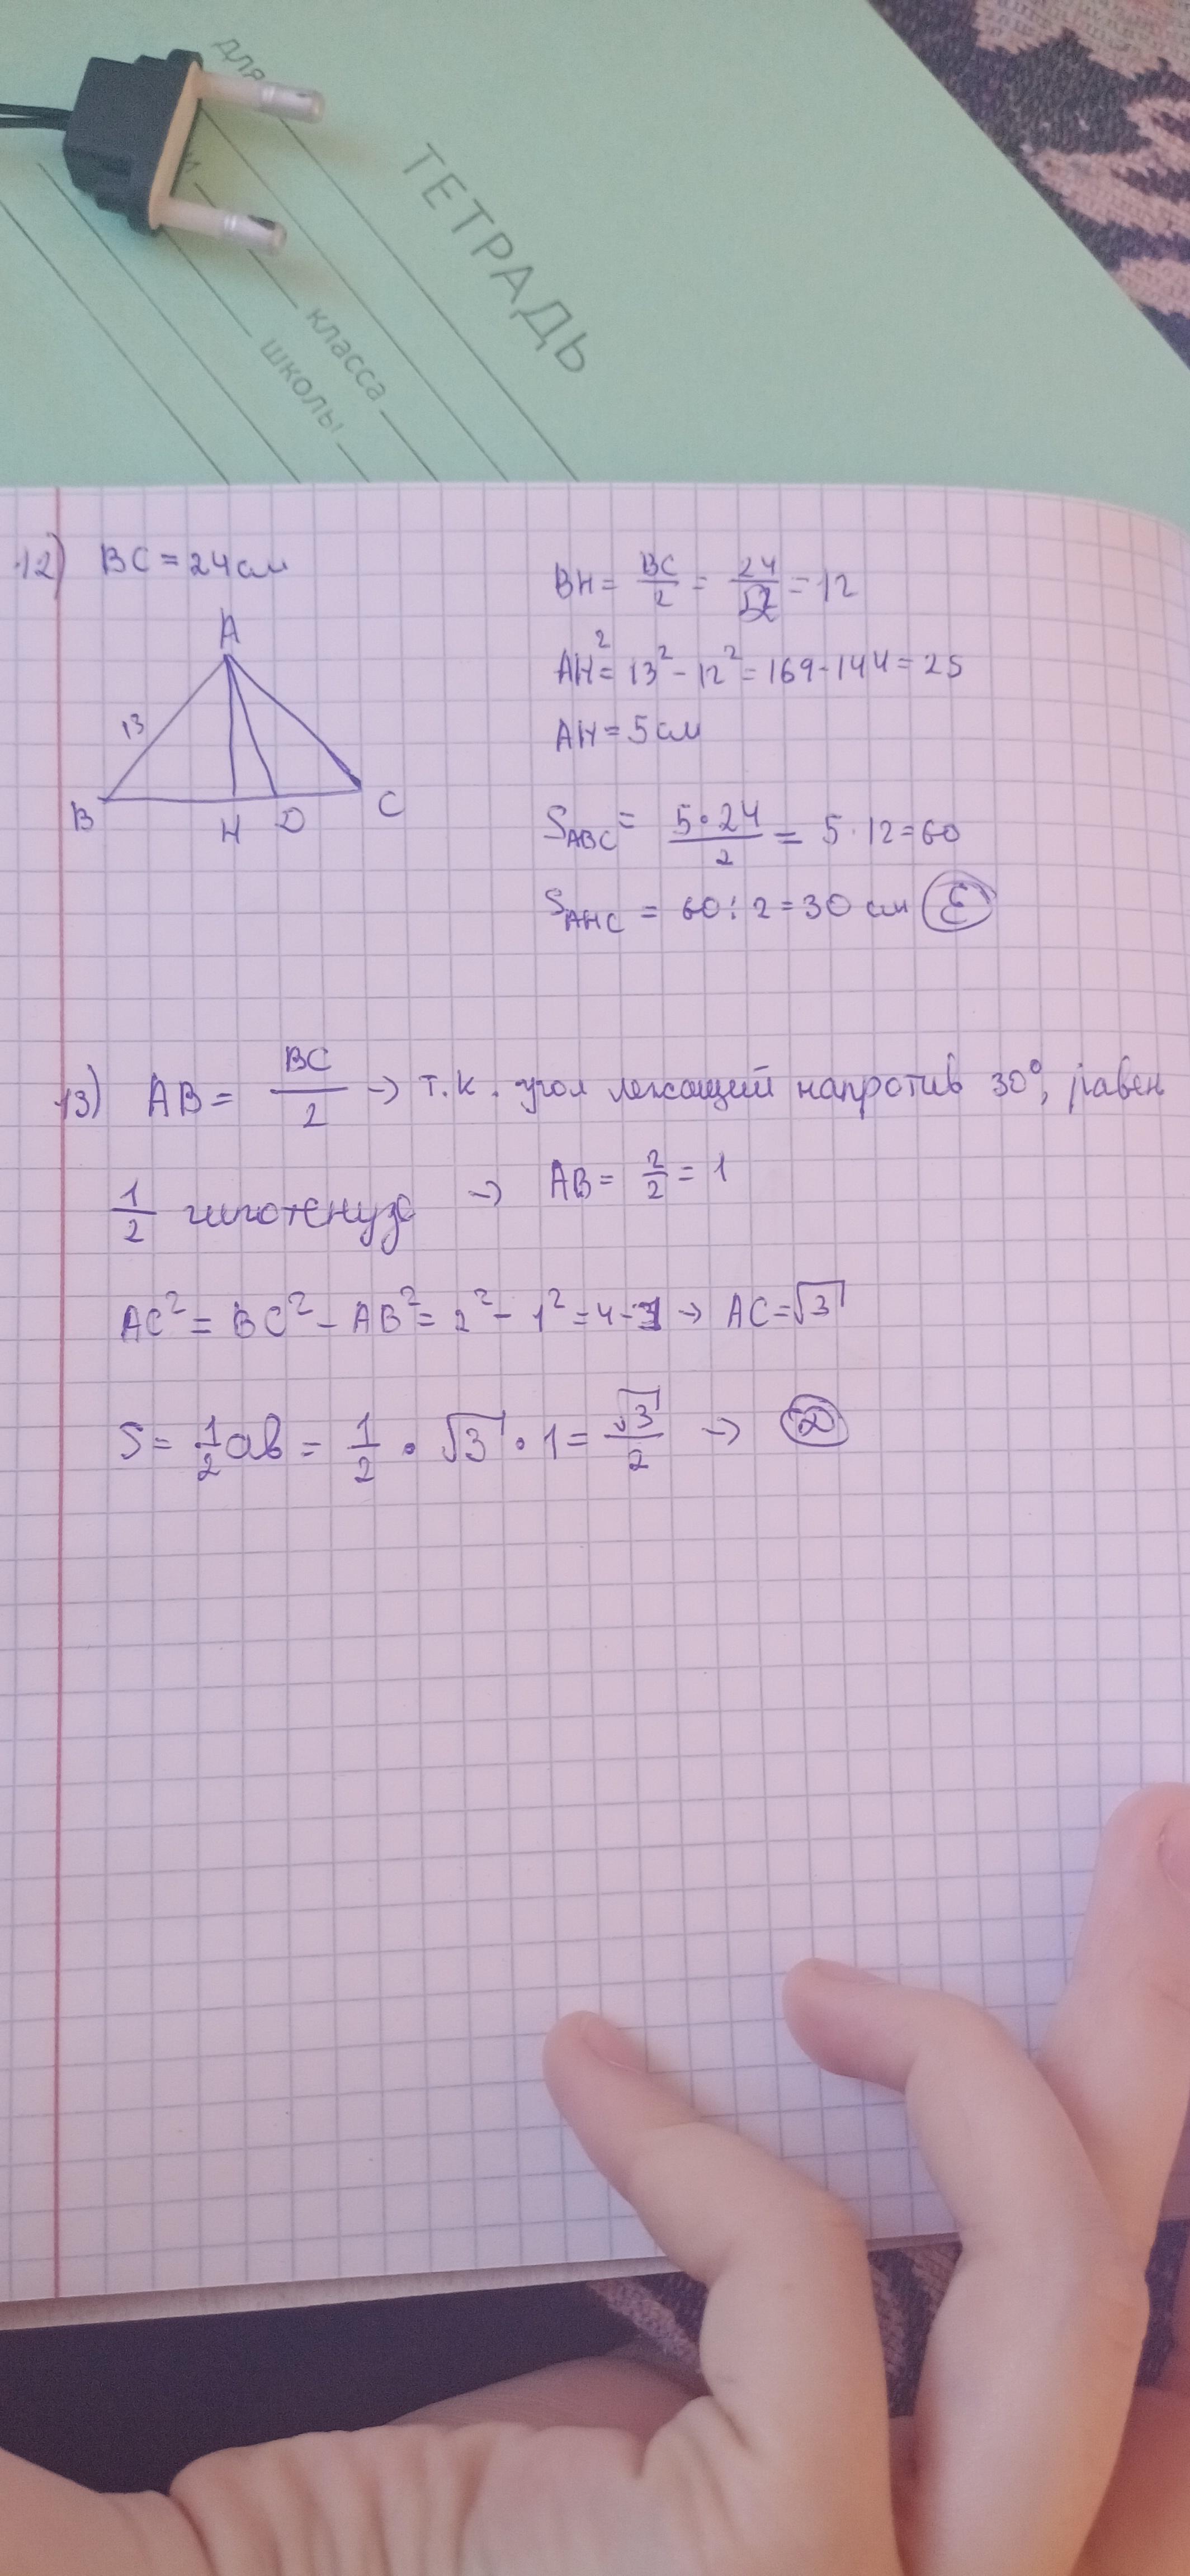 для
ТЕТРАДЬ
класса
школы
12) BC = 24 см
A
13
B
H
D
C
BH = BC/2 = 24/2 = 12
AH² = 13² - 12² = 169 - 144 = 25
AH = 5 см
S_ABC = 5·24/2 = 5·12 = 60
S_AHC = 60 : 2 = 30 см E
13) AB = BC/2 → т.к. угол лежащий напротив 30°, равен
1/2 гипотенузе → AB = 2/2 = 1
AC² = BC² - AB² = 2² - 1² = 4 - 1 → AC = √3
S = 1/2 ab = 1/2 · √3 · 1 = √3/2 → D